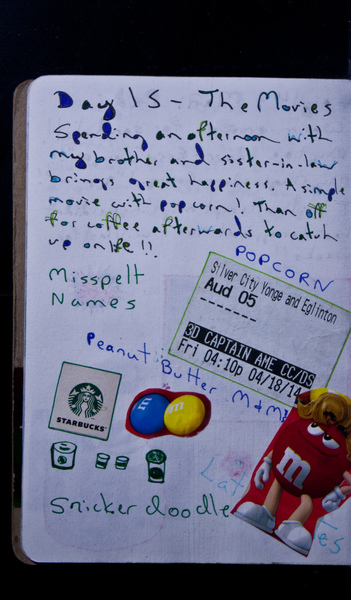 Day 15 - The Movies
Spending an afternoon with
my brother and sister-in-law
brings great happiness. A simple
movie with popcorn! Than off
for coffee afterwards to catch
up on life!!
POPCORN
Misspelt
Names
Silver City Yonge and Eglinton
Aud 05
-------
3D CAPTAIN AME CC/DS
Fri 04:10p 04/18/14
Peanut
Butter M&Ms
STARBUCKS
m
m
m
Lattes
Snickerdoodle